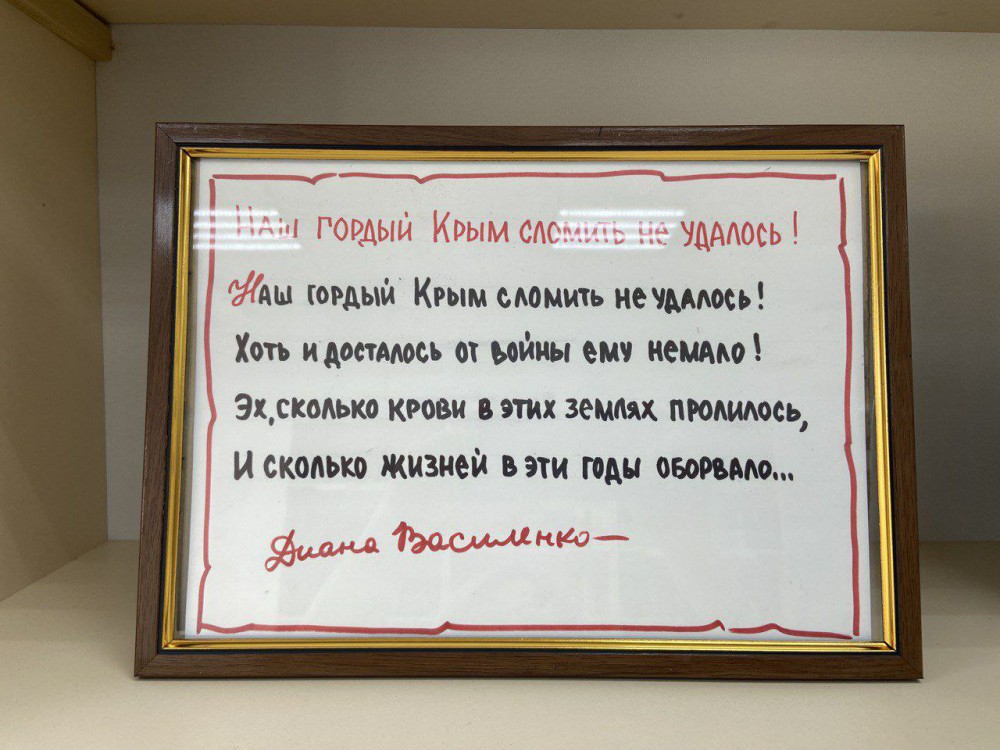 Наш гордый Крым сломить не удалось!
Наш гордый Крым сломить не удалось!
Хоть и досталось от войны ему немало!
Эх, сколько крови в этих землях пролилось,
И сколько жизней в эти годы оборвало...
Диана Василенко